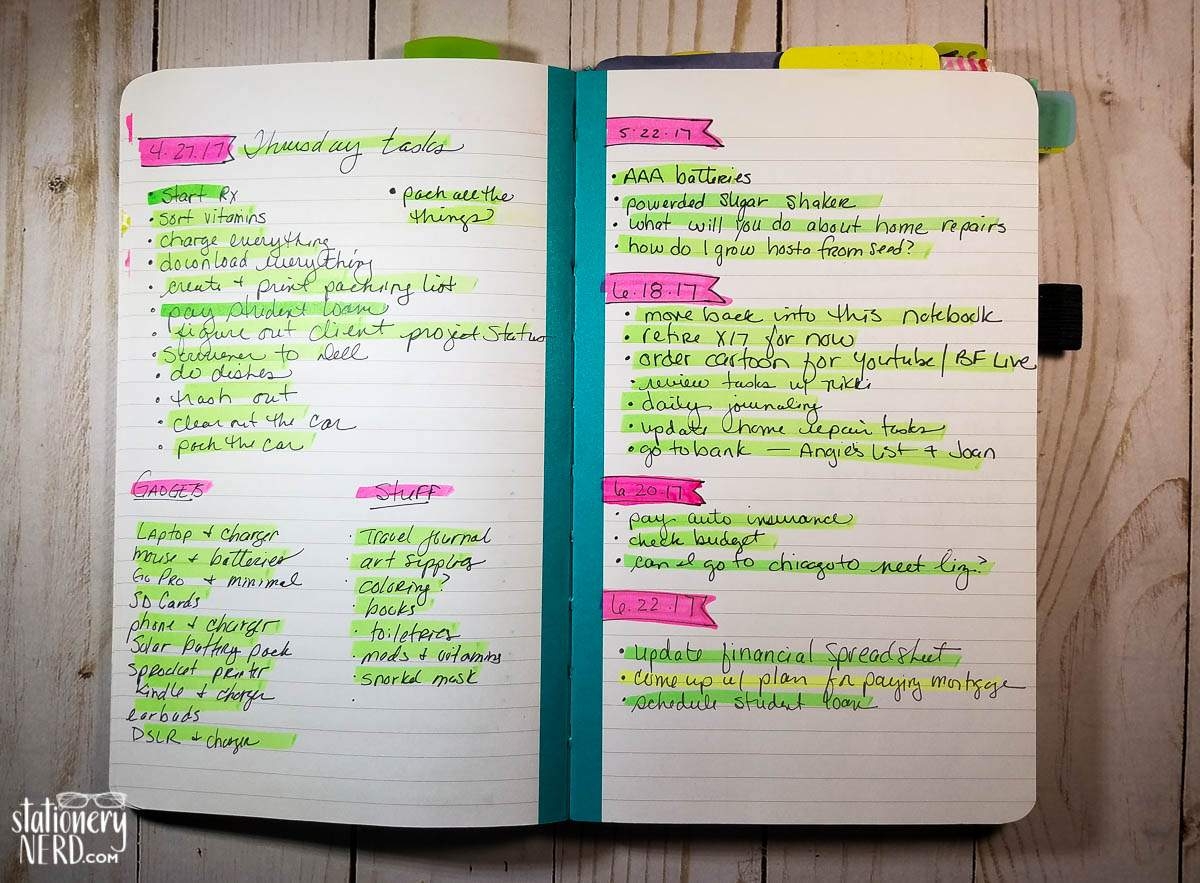 4.27.17 Thursday tasks
• Start Rx
• sort vitamins
• charge everything
• download everything
• create + print packing list
• pay student loan
• figure out client project status
• Scrivener to Dell
• do dishes
• trash out
• clean out the car
• pack the car
• pack all the
things
GADGETS
Laptop + charger
mouse + batteries
Go Pro + minimal
SD Cards
phone + charger
Solar battery pack
Sprocket printer
Kindle + charger
earbuds
DSLR + charger
STUFF
· Travel journal
· art supplies
· coloring?
· books
· toiletries
· meds + vitamins
· snorkel mask
·
5.22.17
• AAA batteries
• powdered sugar shaker
• what will you do about home repairs
• how do I grow hosta from seed?
6.18.17
• move back into this notebook
• retire X17 for now
• order cartoon for Youtube/BF Live
• review tasks w/ Rikki
• daily journaling
• update home repair tasks
• go to bank — Angie's List + Joan
6.20.17
• pay auto insurance
• check budget
• can I go to chicago to meet liz?
6.22.17
• update financial spreadsheet
• come up w/ plan for paying mortgage
• schedule student loan
stationery
NERD.COM